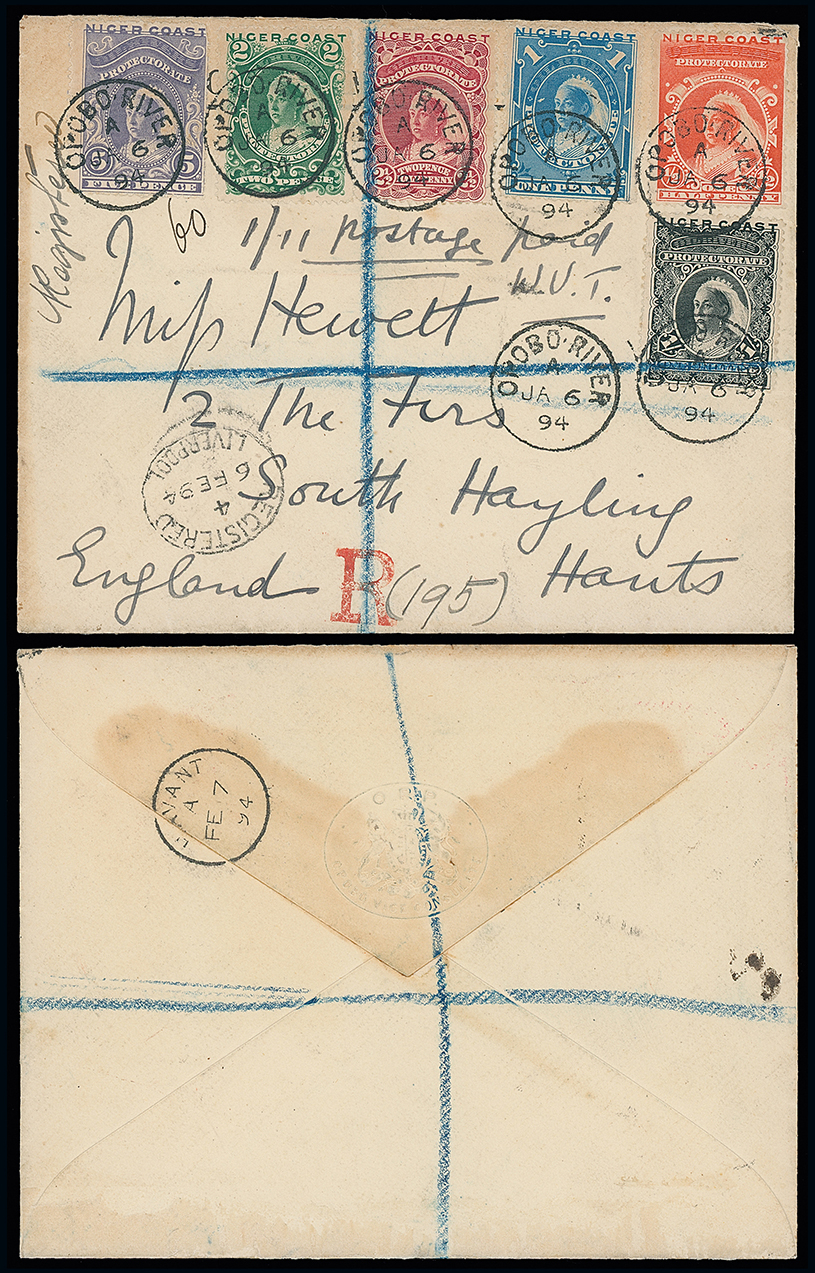 NIGER COAST
PROTECTORATE
5
FIVE PENCE
NIGER COAST
2
2
PROTECTORATE
TWO PENCE
NIGER COAST
PROTECTORATE
TWOPENCE
2½
½
HALFPENNY
NIGER COAST
1
ONE PENNY
NIGER COAST
PROTECTORATE
ONE
HALF PENNY
OPOBO·RIVER
A
JA 6
94
OPOBO·RIVER
A
JA 6
94
OPOBO·RIVER
A
JA 6
94
OPOBO·RIVER
A
JA 6
94
OPOBO·RIVER
A
JA 6
94
NIGER COAST
PROTECTORATE
Registered
60
1/11 postage paid
W.V.T.
Miss Hewett
OPOBO·RIVER
A
JA 6
94
OPOBO·RIVER
A
JA 6
94
2 The Firs
South Hayling
Hants
England
REGISTERED
4
6 FE 94
LIVERPOOL
R
(195)
HAVANT
A
FE 7
94